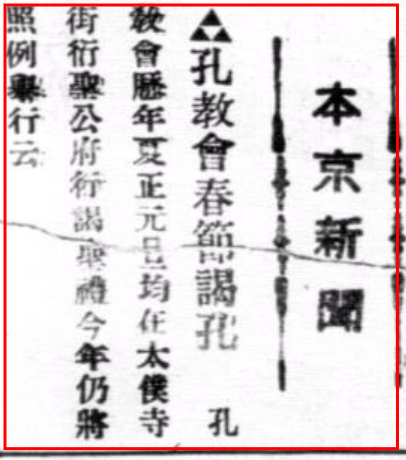 本京新聞
▲孔教會春節謁孔 孔
教會歷年夏正元旦均在太僕寺
街衍聖公府行謁聖禮今年仍將
照例舉行云